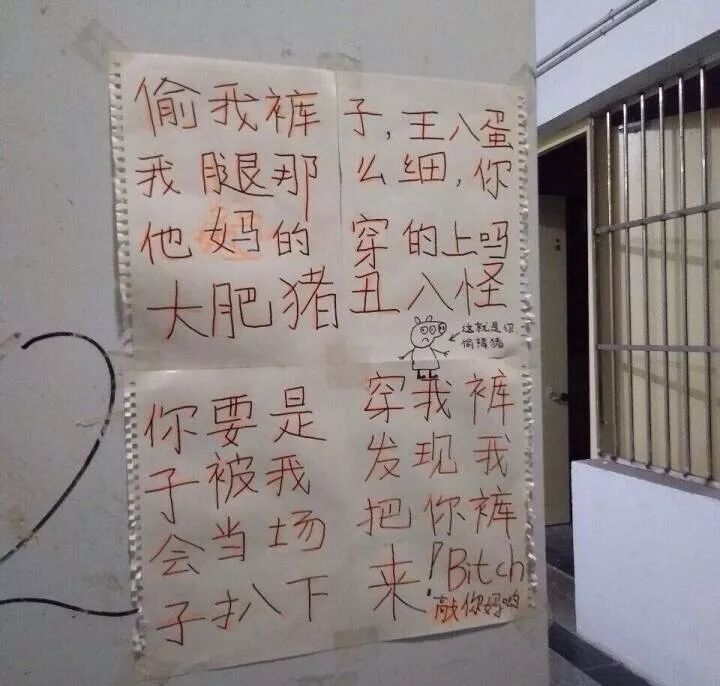 偷我裤子,王八蛋
我腿那么细,你
他妈的穿的上吗
大肥猪丑八怪
这就是你
偷裤猪
你要是穿我裤
子被我发现我
会当场把你裤
子扒下来!Bitch
敲你妈哟